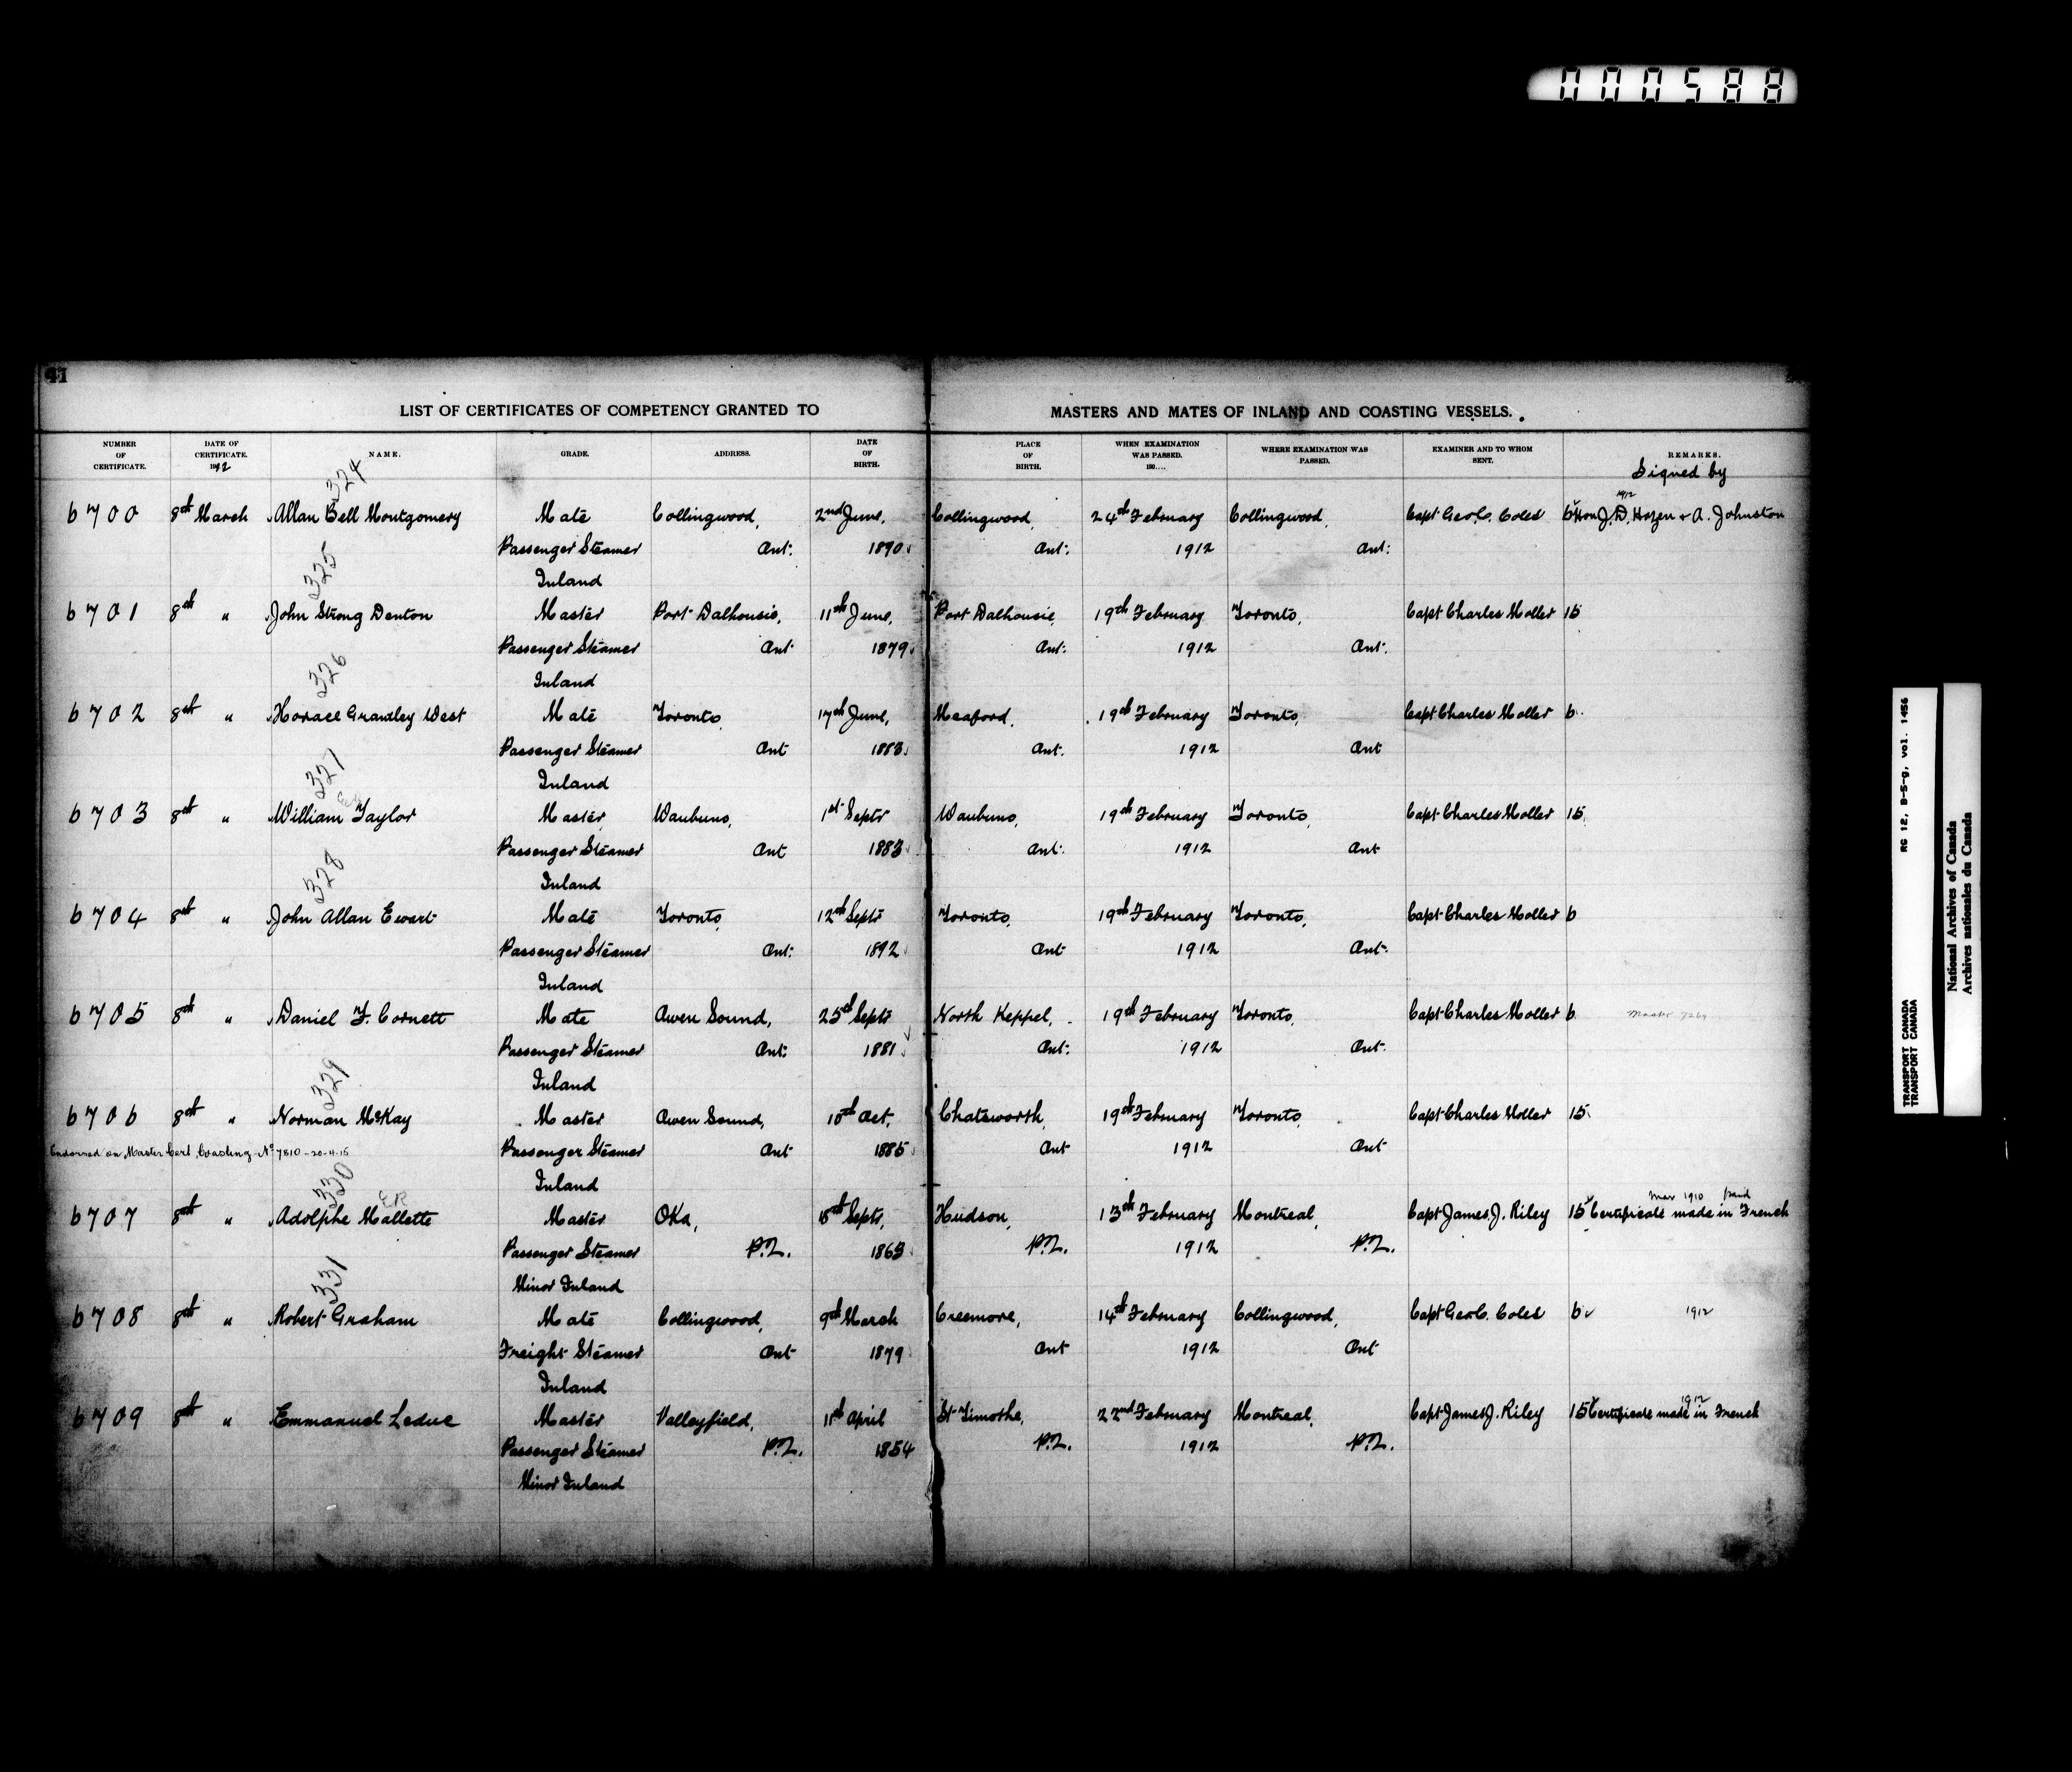 000588
41
LIST OF CERTIFICATES OF COMPETENCY GRANTED TO MASTERS AND MATES OF INLAND AND COASTING VESSELS.
NUMBER OF CERTIFICATE. DATE OF CERTIFICATE. 1912 NAME. GRADE. ADDRESS. DATE OF BIRTH. PLACE OF BIRTH. WHEN EXAMINATION WAS PASSED. 190.... WHERE EXAMINATION WAS PASSED. EXAMINER AND TO WHOM SENT. REMARKS.
Signed by
324
1912
6700 8th March Allan Bell Montgomery Mate Collingwood, 2nd June, Collingwood, 24th February Collingwood, Capt Geo. C. Coles 6 Hon J. D. Hazen & A. Johnston
Passenger Steamer Ont: 1890 Ont: 1912 Ont:
325 Inland
6701 8th " John Strong Denton Master Port Dalhousie, 11th June, Port Dalhousie, 19th February Toronto, Capt Charles Moller 15
Passenger Steamer Ont 1879 Ont: 1912 Ont.
326 Inland
6702 8th " Horace Grantley West Mate Toronto, 17th June, Meaford, 19th February Toronto, Capt Charles Moller 6
Passenger Steamer Ont 1883 Ont. 1912 Ont
327 Inland
6703 8th " William Taylor Master Waubuno, 1st Septr Waubuno, 19th February Toronto, Capt Charles Moller 15
Passenger Steamer Ont 1883 Ont: 1912 Ont
328 Inland
6704 8th " John Allan Ewart Mate Toronto, 12th Septr Toronto, 19th February Toronto, Capt Charles Moller 6
Passenger Steamer Ont: 1892 Ont 1912 Ont.
Inland
6705 8th " Daniel F. Cornett Mate Owen Sound, 25th Septr North Keppel, 19th February Toronto, Capt Charles Moller 6 Master
Passenger Steamer Ont: 1881 Ont: 1912 Ont.
329 Inland
6706 8th " Norman McKay Master Owen Sound, 10th Oct, Chatsworth, 19th February Toronto, Capt Charles Moller 15
Endorsed on Master Cert Coasting No 7810-20-4-15 Passenger Steamer Ont 1885 Ont 1912 Ont
330 Inland
ER
Mar 1910
6707 8th " Adolphe Mallette Master Oka, Septr, Hudson, 13th February Montreal, Capt James J. Riley 15 Certificate made in French
Passenger Steamer P.Q. 1863 P.Q. 1912 P.Q.
331 Minor Inland
6708 8th " Robert Graham Mate Collingwood, 9th March Creemore, 14th February Collingwood, Capt Geo. C. Coles 6 1912
Freight Steamer Ont 1879 Ont 1912 Ont
Inland
1912
6709 8th " Emmanuel Leduc Master Valleyfield, 11th April St Timothe, 22nd February Montreal, Capt James J. Riley 15 Certificate made in French
Passenger Steamer P.Q. 1854 P.Q. 1912 P.Q.
Minor Inland
RG 12, B-5-g, vol. 1456
TRANSPORT CANADA
TRANSPORT CANADA
National Archives of Canada
Archives nationales du Canada